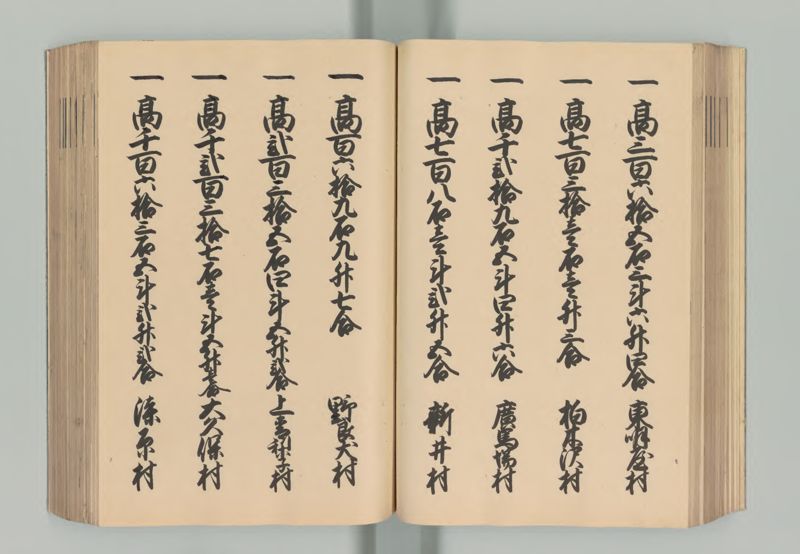 一 高三百六拾五石三斗六升四合 東明屋村
一 高七百三拾壱石壱升三合 柏木沢村
一 高千弐拾九石五斗四升六合 廣馬場村
一 高七百八石壱斗弐升五合 新井村
一 高百六拾九石九升七合 野良犬村
一 高弐百三拾五石四斗五升弐合 上青梨子村
一 高千弐百三拾七石壱斗五升七合 大久保村
一 高千百六拾三石五斗弐升弐合 漆原村